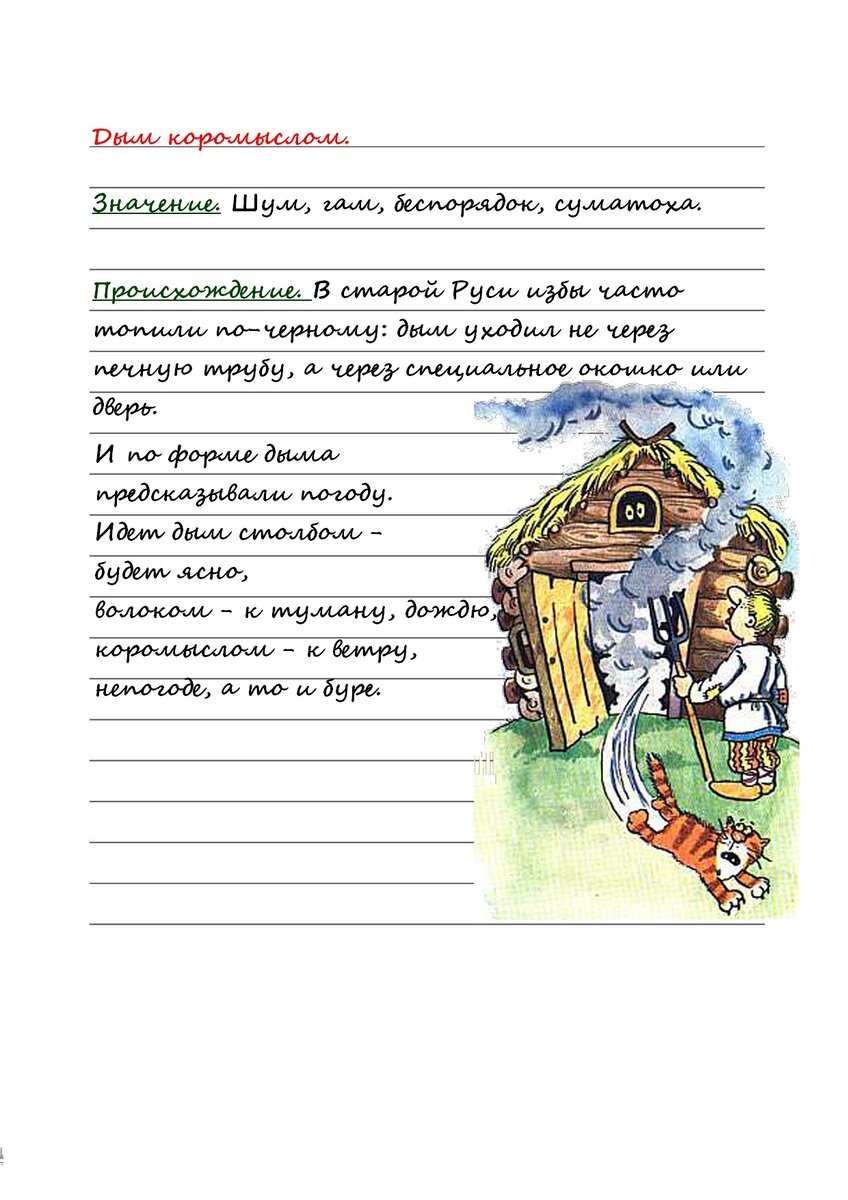 Дым коромыслом.
Значение. Шум, гам, беспорядок, суматоха.
Происхождение. В старой Руси избы часто
топили по-черному: дым уходил не через
печную трубу, а через специальное окошко или
дверь.
И по форме дыма
предсказывали погоду.
Идет дым столбом -
будет ясно,
волоком - к туману, дождю,
коромыслом - к ветру,
непогоде, а то и буре.